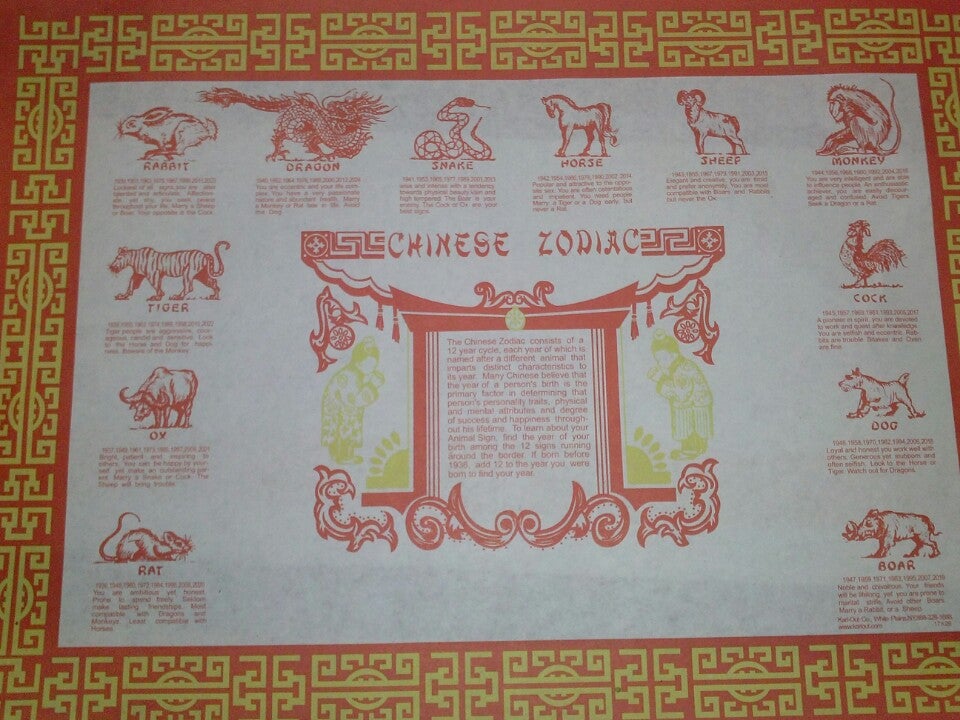 RABBIT
Luckiest of all signs you are also
talented and articulate. Affection-
ate yet shy, you seek peace
throughout your life. Marry a Sheep
or Boar. Your opposite is the Cock.
DRAGON
You are eccentric and your life com-
plex. You have a very passionate
nature and abundant health. Marry
a Monkey or Rat late in life. Avoid
the Dog.
SNAKE
1941, 1953, 1965, 1977, 1989, 2001, 2013
Wise and intense with a tendency
towards physical beauty. Vain and
high tempered. The Boar is your
enemy. The Cock or Ox are your
best signs.
HORSE
1942, 1954, 1966, 1978, 1990, 2002, 2014
Popular and attractive to the oppo-
site sex. You are often ostentatious
and impatient. You need people.
Marry a Tiger or a Dog early, but
never a Rat.
SHEEP
1943, 1955, 1967, 1979, 1991, 2003, 2015
Elegant and creative, you are timid
and prefer anonymity. You are most
compatible with Boars and Rabbits
but never the Ox.
MONKEY
1944, 1956, 1968, 1980, 1992, 2004, 2016
You are very intelligent and are able
to influence people. An enthusiastic
achiever, you are easily discour-
aged and confused. Avoid Tigers.
Seek a Dragon or a Rat.
CHINESE ZODIAC
TIGER
1938, 1950, 1962, 1974, 1986, 1998, 2010, 2022
Tiger people are aggressive, cour-
ageous, candid and sensitive. Look
to the Horse and Dog for happi-
ness. Beware of the Monkey.
COCK
1945, 1957, 1969, 1981, 1993, 2005, 2017
A pioneer in spirit, you are devoted
to work and quest after knowledge.
You are selfish and eccentric. Rab-
bits are trouble. Snakes and Oxen
are fine.
The Chinese Zodiac consists of a
12 year cycle, each year of which is
named after a different animal that
imparts distinct characteristics to
its year. Many Chinese believe that
the year of a person's birth is the
primary factor in determining that
person's personality traits, physical
and mental attributes and degree
of success and happiness through-
out his lifetime. To learn about your
Animal Sign, find the year of your
birth among the 12 signs running
around the border. If born before
1936, add 12 to the year you were
born to find your year.
OX
1937, 1949, 1961, 1973, 1985, 1997, 2009, 2021
Bright, patient and inspiring to
others. You can be happy by your-
self, yet make an outstanding par-
ent. Marry a Snake or Cock. The
Sheep will bring trouble.
DOG
1946, 1958, 1970, 1982, 1994, 2006, 2018
Loyal and honest you work well with
others. Generous yet stubborn and
often selfish. Look to the Horse or
Tiger. Watch out for Dragons.
RAT
1936, 1948, 1960, 1972, 1984, 1996, 2008, 2020
You are ambitious yet honest.
Prone to spend freely. Seldom
make lasting friendships. Most
compatible with Dragons and
Monkeys. Least compatible with
Horses.
BOAR
1947, 1959, 1971, 1983, 1995, 2007, 2019
Noble and chivalrous. Your friends
will be lifelong, yet you are prone to
marital strife. Avoid other Boars.
Marry a Rabbit, or a Sheep.
Kari-Out Co., White Plains, NY
www.kariout.com